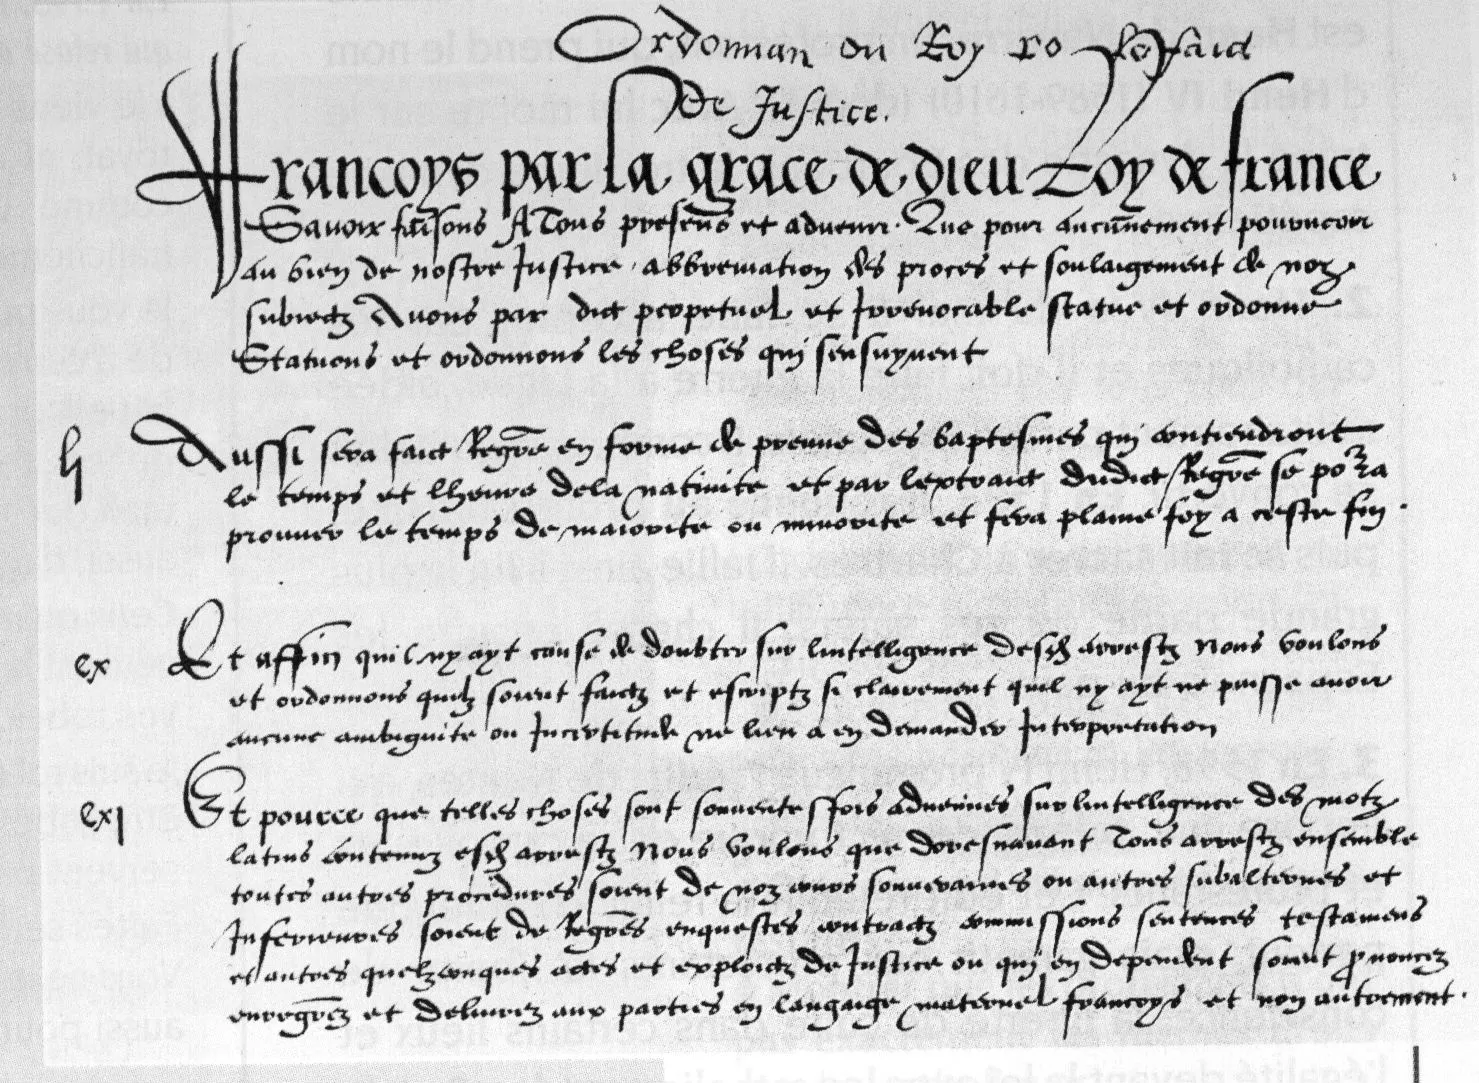 Ordonnan du Roy
De Justice.
francoys par la grace de dieu Roy de france
Savoir faisons A Tous presens et advenir. Que pour aucunement pourveoir
au bien de nostre Justice abbreviation des proces et soulaigement de noz
subiectz Avons par dict perpetuel et Irrevocable statue et ordonne
Statuons et ordonnons les choses qui sensuyvent
lj Aussi sera faict Regre en forme de preuve des baptesmes qui contiendront
le temps et lheure dela nativite et par lextraict dudict Regre se porra
prouver le temps de maiorite ou minorite et fera plaine foy a ceste fin.
cx Et affin quil ny ayt cause de doubter sur lintelligence desd arrestz Nous voulons
et ordonnons quilz soient faictz et escriptz si clairement quil ny ayt ne puisse avoir
aucune ambiguite ou Incertitude ne lieu a en demander Interpretation
cxj Et pource que telles choses sont souventesffois advenues sur lintelligence des motz
latins contenuz esd arrestz Nous voulons que doresnavant Tous arrestz ensemble
toutes autres procedures soient de noz cours souveraines ou autres subalternes et
Inferieures soient de Regres enquestes contractz commissions sentences testamens
et autres quelzconques actes et exploictz de Justice ou qui en dependent soient pronuncez
enregrez et delivrez aux parties en langaige maternel francoys et non autrement.